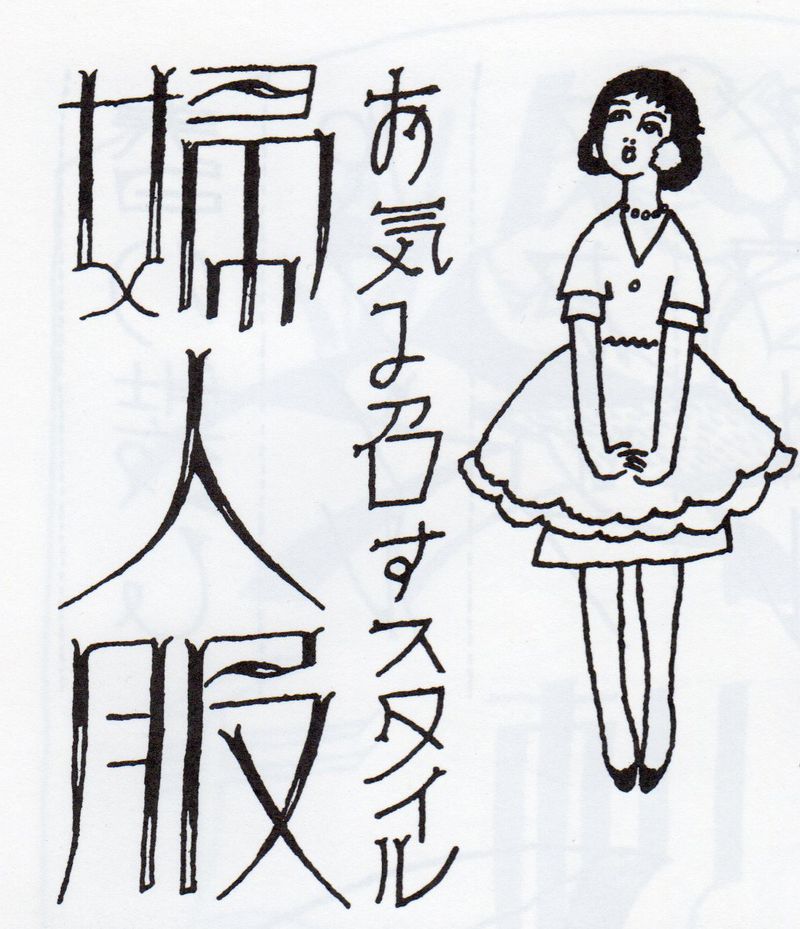 お気に召すスタイル
婦人服